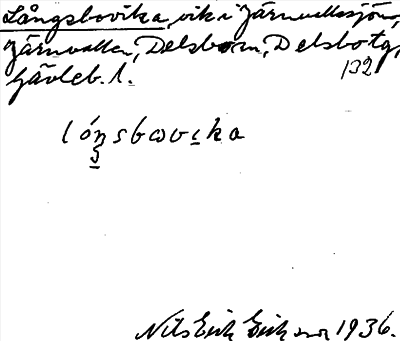 Långsbovika, vik i Järnvallssjön,
Järnvallen, Delsbo sn, Delsbo tg,
Gävleb. l. 132
lóŋsbωvιka
Nils Erik Eriksson 1936.